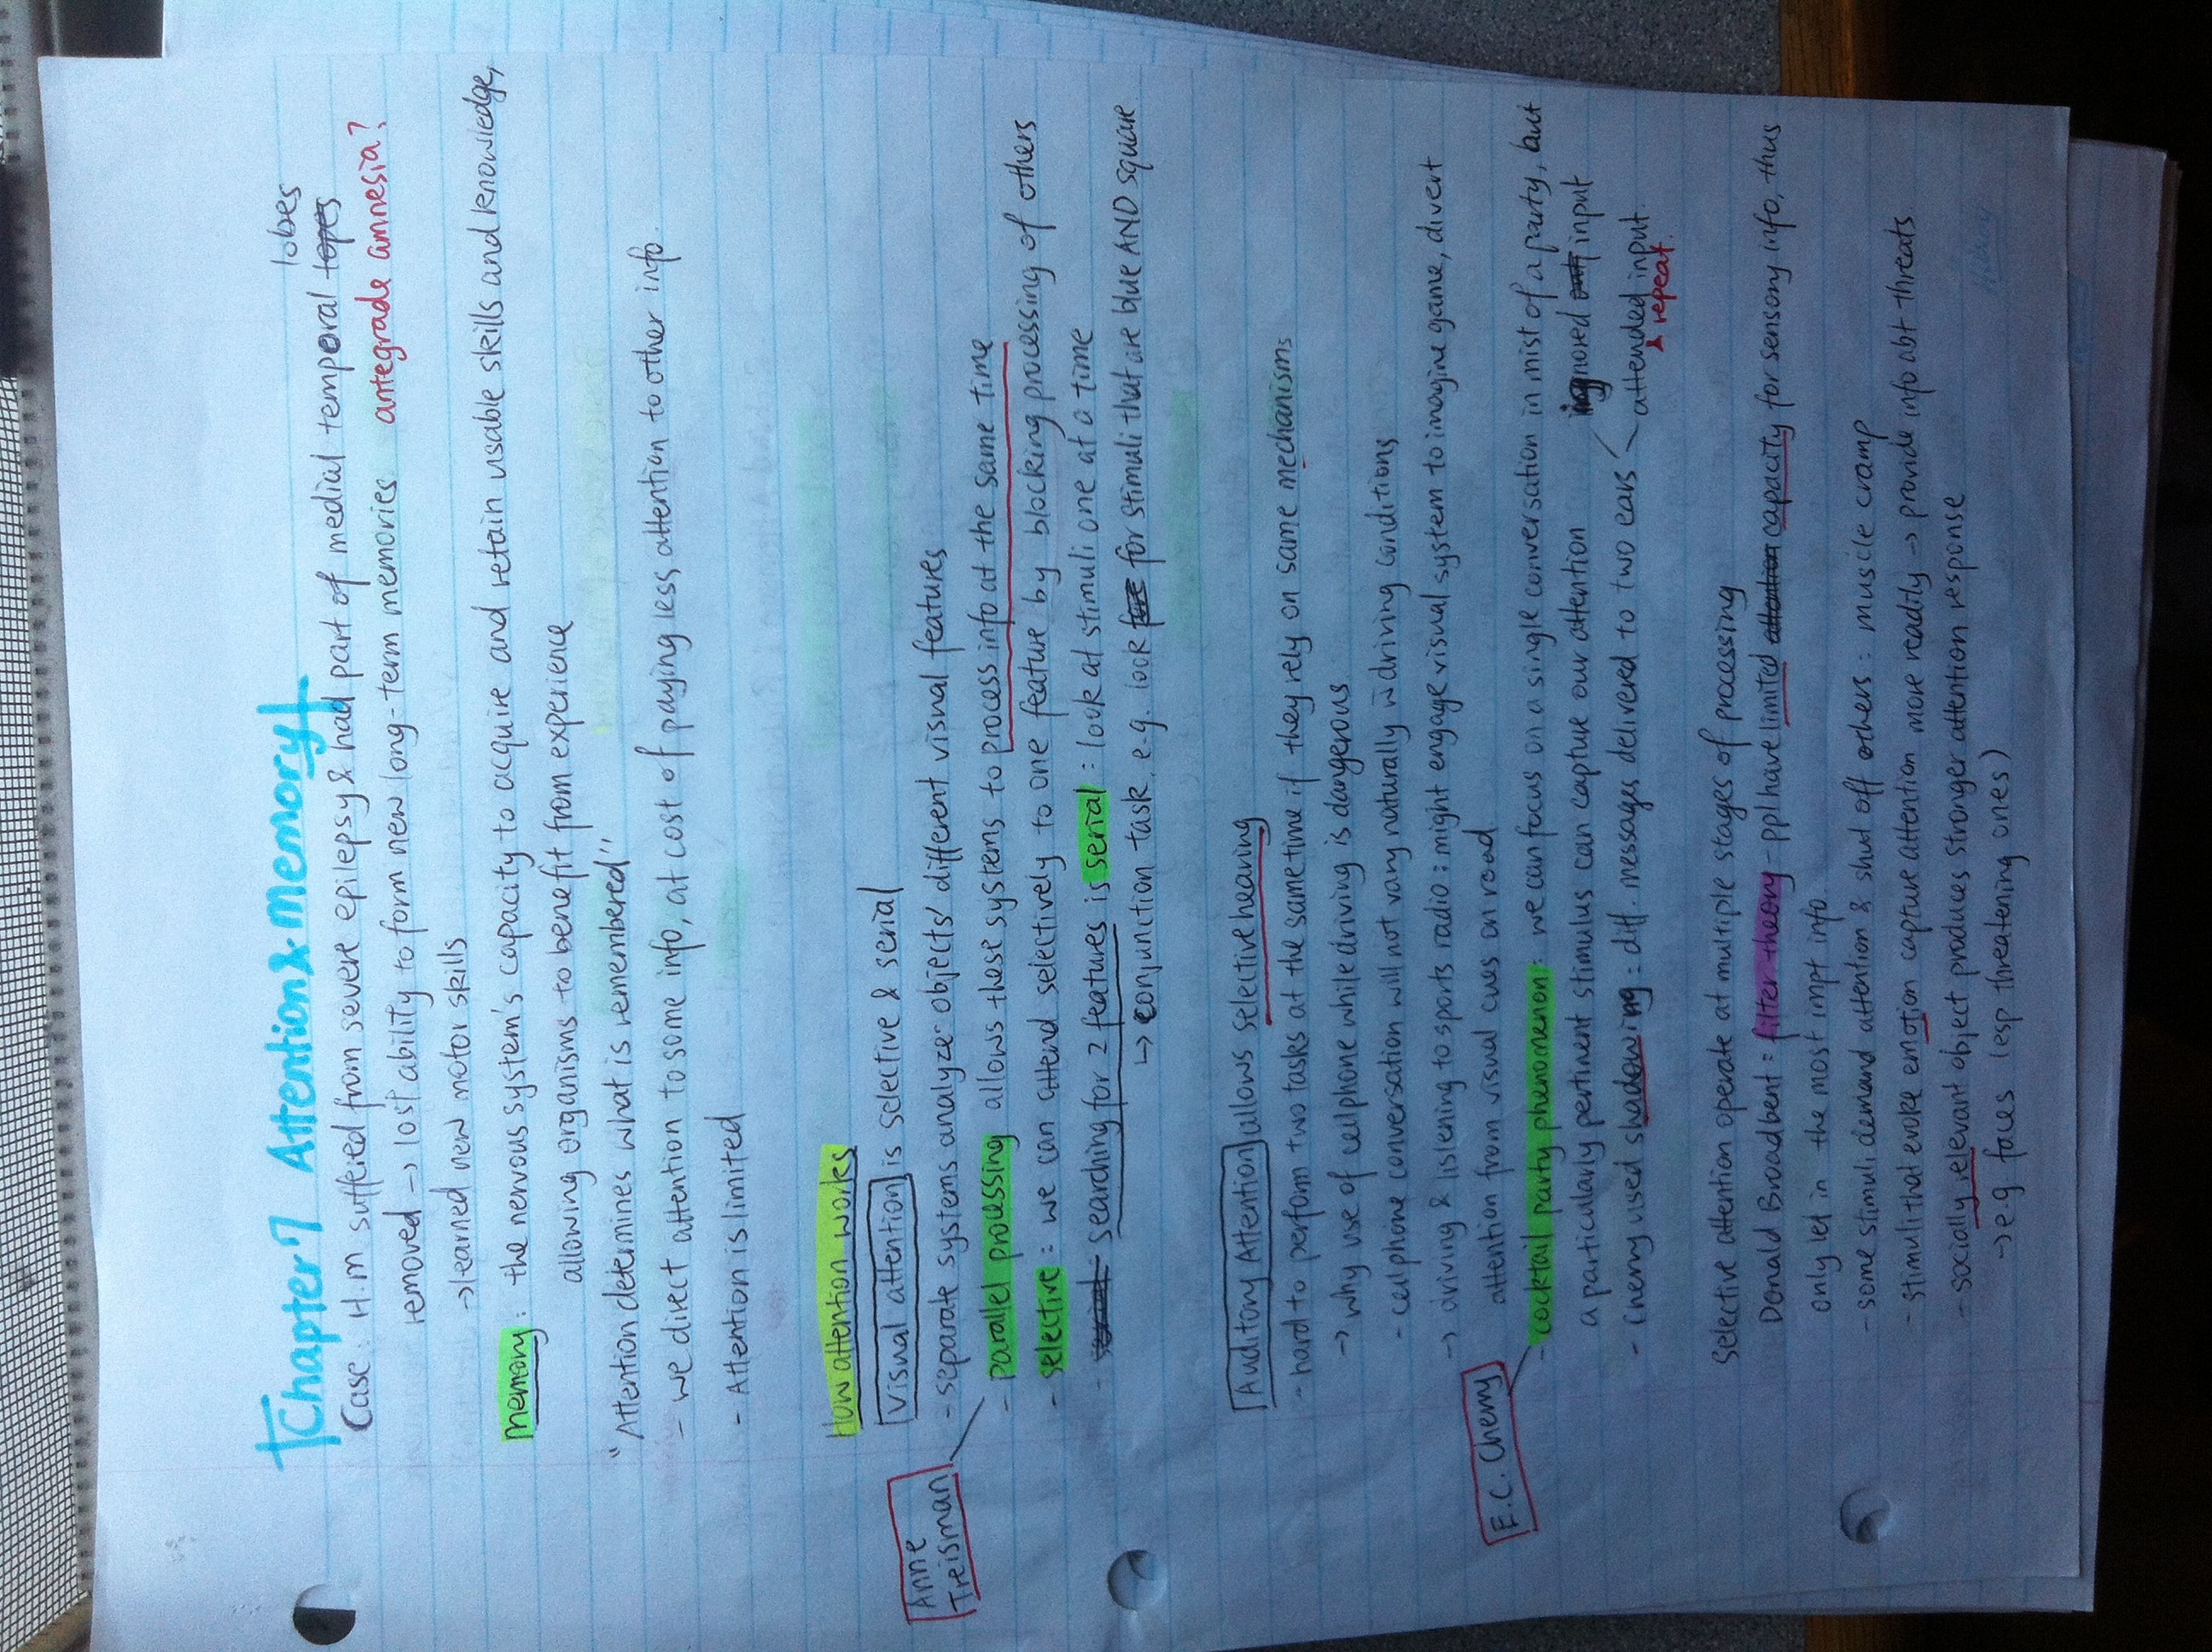 Chapter 7 Attention & Memory
Case: H.M suffered from severe epilepsy & had part of medial temporal topes lobes
removed → lost ability to form new long-term memories. antegrade amnesia?
→ learned new motor skills
memory: the nervous system's capacity to acquire and retain usable skills and knowledge,
allowing organisms to benefit from experience
"Attention determines what is remembered"
- we direct attention to some info, at cost of paying less attention to other info.
- Attention is limited
How attention works
Visual attention is selective & serial
- separate systems analyze objects' different visual features
Anne Treisman
- parallel processing allows these systems to process info at the same time
- selective: we can attend selectively to one feature by blocking processing of others
- serial: searching for 2 features is serial: look at stimuli one at a time
→ conjunction task. e.g. look for stimuli that are blue AND square
Auditory Attention allows selective hearing
- hard to perform two tasks at the same time if they rely on same mechanisms
→ why use of cellphone while driving is dangerous
- cellphone conversation will not vary naturally w driving conditions
→ driving & listening to sports radio: might engage visual system to imagine game, divert
attention from visual cues on road
E.C. Cherry
- cocktail party phenomenon: we can focus on a single conversation in mist of a party, but
a particularly pertinent stimulus can capture our attention
- Cherry used shadowing: diff. messages delivered to two ears
ignored input
attended input.
repeat.
Selective attention operate at multiple stages of processing
Donald Broadbent: filter theory - ppl have limited attention capacity for sensory info, thus
only let in the most impt info.
- some stimuli demand attention & shut off others: muscle cramp
- stimuli that evoke emotion capture attention more readily → provide info abt threats
- socially relevant object produces stronger attention response
→ e.g. faces (esp threatening ones)